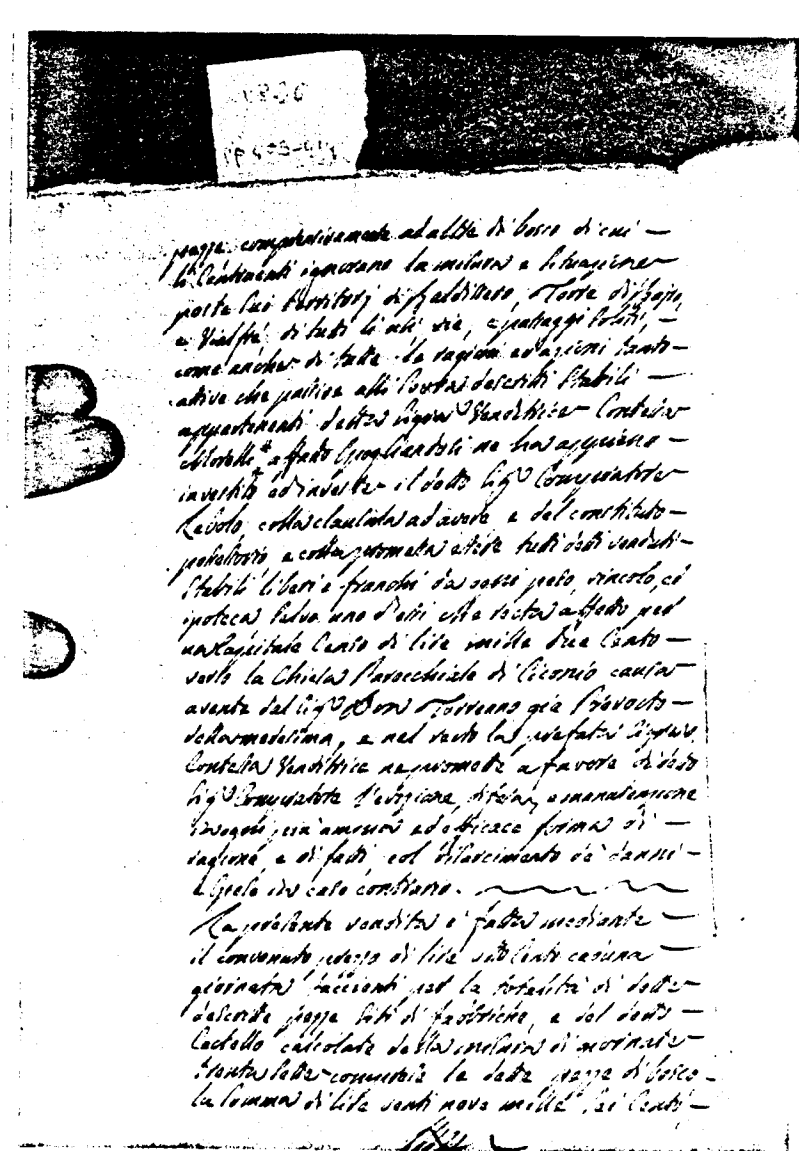 pezze comprensivamente ad altre di bosco di cui —
li Contraenti ignorano la misura e situazione
poste sui territorj di Baldissero, Torre di Bajro,
e Vialfrè, di tutti li usi vie, e passaggi soliti, —
come anche di tutte le ragioni ed azioni tanto —
attive che passive alli sovra descritti Stabili —
appartenenti detta Sig.ra Venditrice Contessa
a fatto ne ha appieno —
investito ed investe il detto Sig.r Compratore
colla clausola ad avere e del constituto —
possessorio e colla promessa essere tutti detti venduti —
Stabili liberi e franchi da ogni peso, vincolo, ed
ipoteca salvo uno d'essi che resta affetto per
un Capitale Censo di lire mille due Cento —
verso la Chiesa Parocchiale di Ciconio causa
avente dal Sig.r Don Torreano già Prevosto —
della medesima, e nel resto la prefata Sig.ra
Contessa Venditrice ne promette a favore di detto
Sig.r Compratore l'evizione, difesa, e manutenzione
in ogni più ampia ed efficace forma di —
ragione e di fatti col risarcimento de' danni —
e spese in caso contrario.
La presente vendita è fatta mediante —
il convenuto prezzo di lire sette Cento caduna —
giornata facienti per la totalità di dette
descritte pezze siti di fabbriche, e del detto —
Castello calcolate della misura di giornate
trenta sette comprese le dette pezze di bosco —
la somma di lire venti nove mille sei Cento —